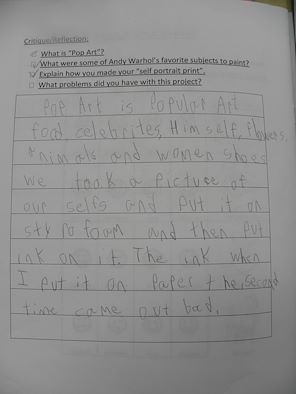 Critique/Reflection:
What is "Pop Art"?
What were some of Andy Warhol's favorite subjects to paint?
Explain how you made your "self portrait print".
What problems did you have with this project?
Pop Art is Popular Art
food celebrites, Him self, flowers,
Animals and women shoes
We took a Picture of
our selfs and put it on
sty ro foam and then put
ink on it. The ink when
I put it on Paper the second
time came out bad.